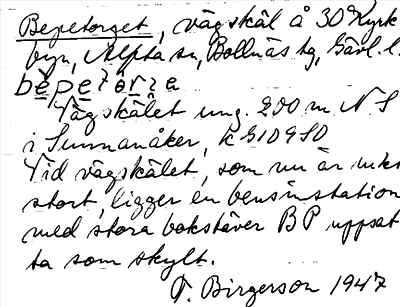 Bepetorget, vägskäl å 30 Kyrk
byn, Alfta sn, Bollnäs tg, Gävl. l.
bèpetårza
Vägskälet ung. 200 m N. S
i Sunnanåker, k G109SO
Vid vägskälet, som nu är
stort, ligger en bensinstation
med stora bokstäver BP uppsat
ta som skylt.
T. Birgerson 1947